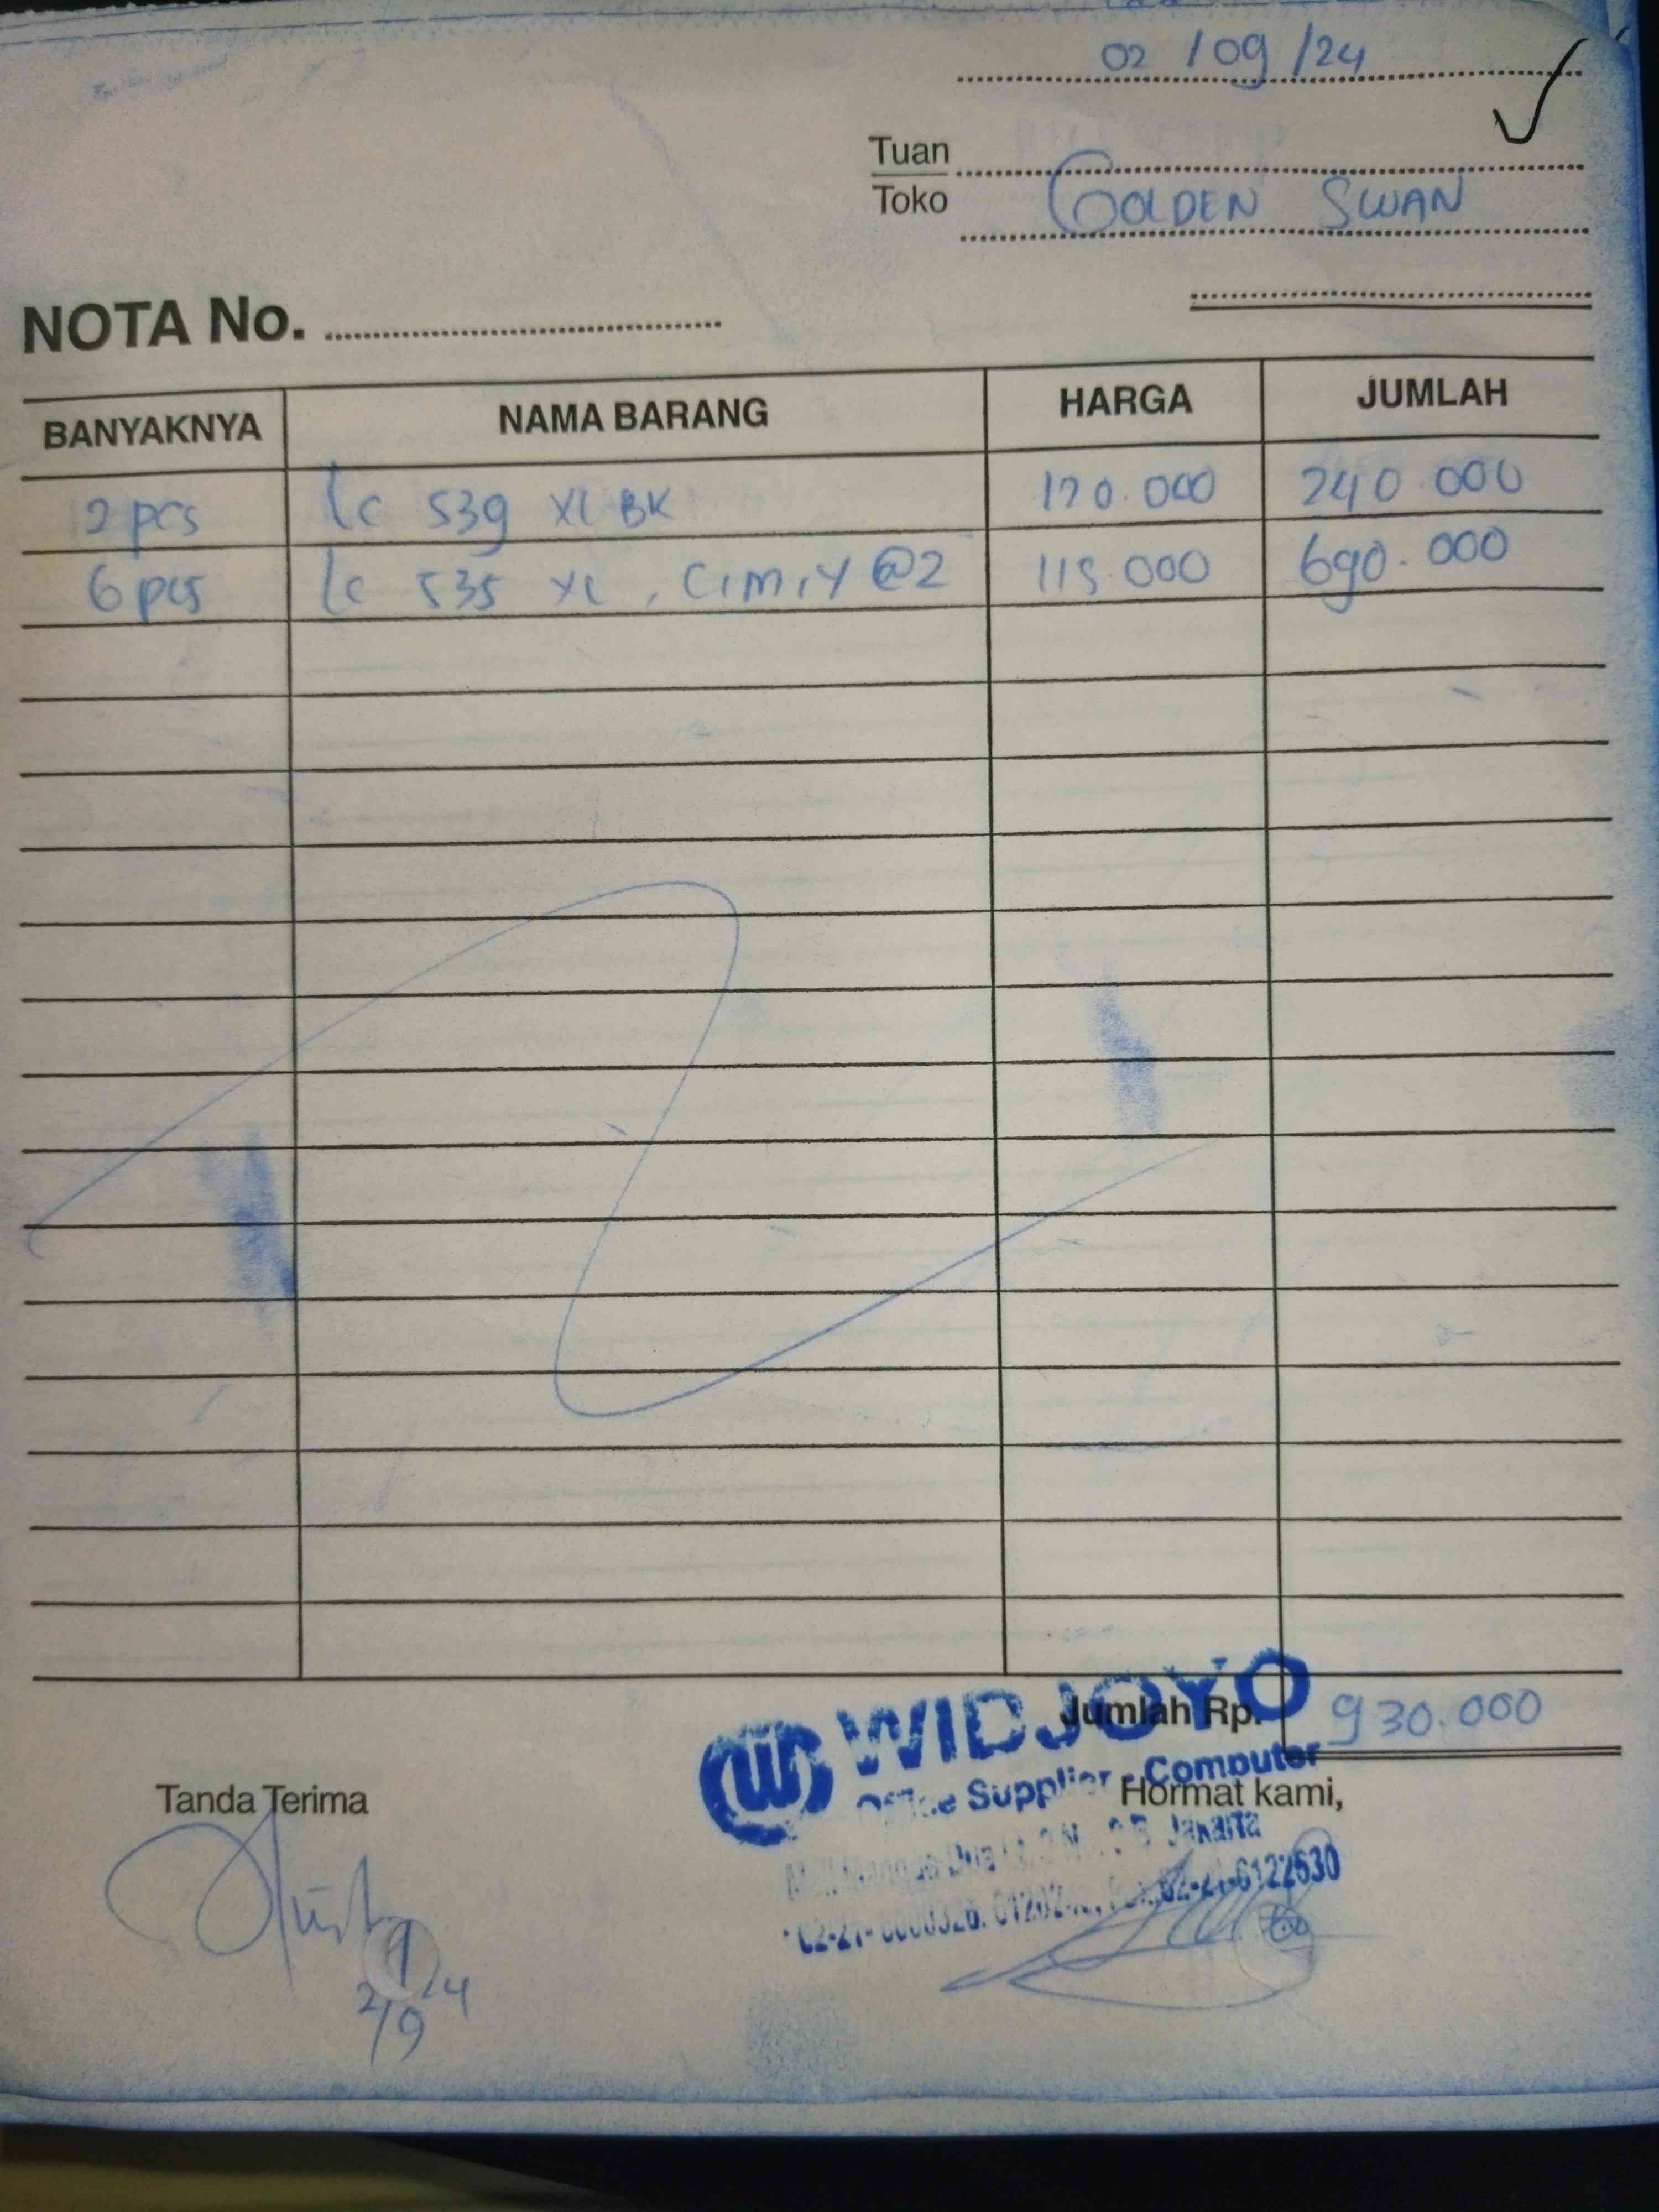 02 / 09 / 24
Tuan
Toko GOLDEN SWAN
NOTA No.
BANYAKNYA NAMA BARANG HARGA JUMLAH
2 pcs lc 539 XL BK 120.000 240.000
6 pcs lc 535 XL, C,M,Y @2 115.000 690.000
WIDJOYO
Jumlah Rp. 930.000
Office Supplier - Computer
Tanda Terima Hormat kami,
Jakarta
62-21-6122630
2/9 24